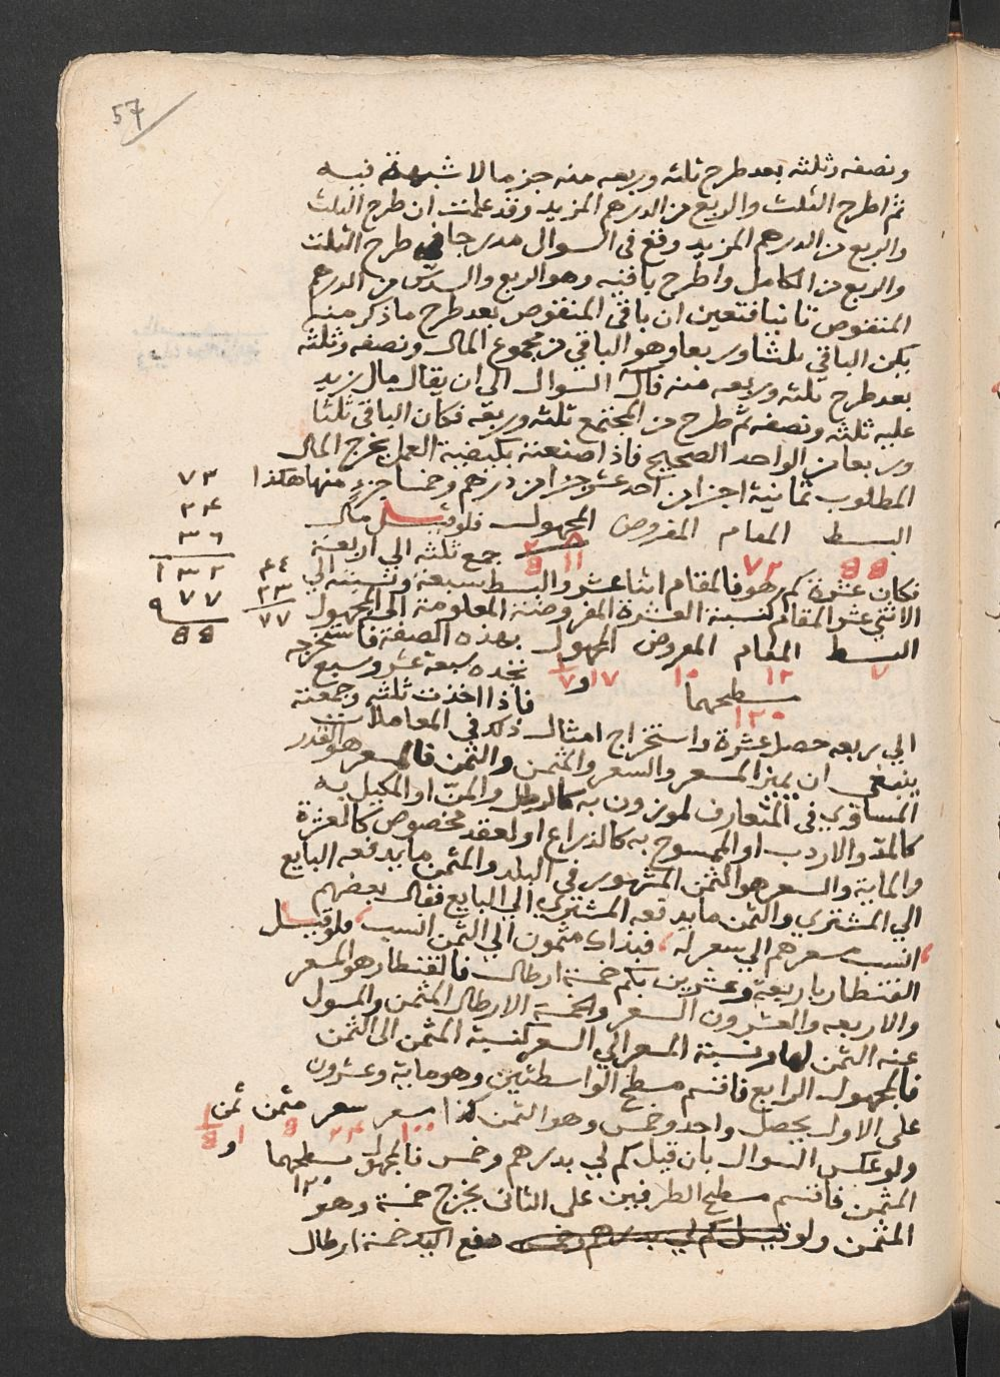 57
ونصفه وثلثه بعد طرح ثلثه وربعه منه جزما لا شبهة فيه
ثم اطرح الثلث والربع من الدرهم المزيد وقد علمت ان طرح الثلث
والربع من الدرهم المزيد وقع في السوال مدرجا في طرح الثلث
والربع من الكامل واطرح باقيه وهو الربع والسدس من الدرهم
المنقوص ثانيا فتعين ان باقي المنقوص بعد طرح ما ذكر منه
يكن الباقي ثلثا وربعا وهو الباقي من مجموع المال ونصفه وثلثه
بعد طرح ثلثه وربعه منه فآل السوال الي ان يقال مال زيد
عليه ثلثه ونصفه ثم طرح من المجتمع ثلثه وربعه فكان الباقي ثلثا
وربعا من الواحد الصحيح فاذا صنعته بكيفية العمل يخرج المال
المطلوب ثمانية اجزا من احد عشر جزا من درهم وخمسا جزء منها هكذا
٧٣
٢٤
٣٦
١٣٢
٧٧
٩
٥٥
البسط المقام المفروض المجهول فلو قيل مال
٥٥ ٧٢ ٨ ٢ ١١ ٥ جمع ثلثه الي اربعة
فكان عشرة كم هو فالمقام اثنا عشر والبسط سبعة ونسبته الي
٤٤
٣٣
٧٧
الاثني عشر المقام كنسبة العشرة المفروضة المعلومة الي المجهول
البسط المقام المفروض المجهول بهذه الصفة فاستخرجه
٧ ١٢ ١٠ ١٧ و ١ ٧ تجده سبعة عشر وسبع
سطحهما فاذا اخذت ثلثه وجمعته
١٢٠
الي ربعه حصل عشرة واستخراج امثال ذلك في المعاملات
ينبغي ان يميز المسعر والسعر والمثمن والثمن فالمسعر هو القدر
المساوي في المتعارف لموزون به كالرطل والمن او المكيل به
كالمد والاردب او الممسوح به كالذراع او لعقد مخصوص كالعشرة
والماية والسعر هو الثمن المشهور في البلد والمثمن ما يدفعه البايع
الي المشتري والثمن ما يدفعه المشتري الي البايع فقال بعضهم
انسب مسعرهم الي سعر له، فبذاك مثمون الي الثمن انسب، فلو قيل
القنطار باربعة وعشرين بكم خمسة ارطال فالقنطار هو المسعر
والاربعه والعشرون السعر والخمسة الارطال المثمن والمسول
عنه الثمن ونسبة المسعر الي السعر كنسبة المثمن الي الثمن
فالمجهول الرابع فاقسم مسطح الواسطتين وهو ماية وعشرون
علي الاول يحصل واحد وخمس وهو الثمن كذا مسعر سعر مثمن ثمن
١٠٠ ٢٤ ٥ ١ و ١ ٥
ولو عكس السوال بان قيل كم لي بدرهم وخمس فالمجهول مسطحهما
١٢٠
المثمن فاقسم مسطح الطرفين علي الثاني يخرج خمسة وهو
المثمن ولو قيل كم لي بدرهم وخمس دفع اليك خمسة ارطال